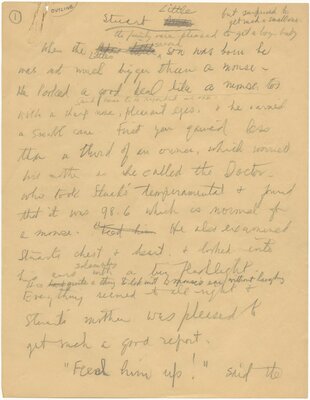 OUTLINE
1
Stuart Little
but surprised to
get such a small one
the family were pleased to get a boy baby
When the Littles' son was born he
was not much bigger than a mouse –
He looked a good deal like a mouse, too
with a sharp nose, pleasant eyes, & he carried
a small cane. First
gained less
than a third of an ounce, which worried
his mother so she called the Doctor –
who took Stuart's temperament & found
that it was 98.6 which is normal for
a mouse. He also examined
Stuart's chest & heart, & looked into
his ears with a big flashlight
It is quite a thing to look into a mouse's ear without laughing
Everything seemed to be all right &
Stuart's mother was pleased to
get such a good report.
"Feed him up!" said the